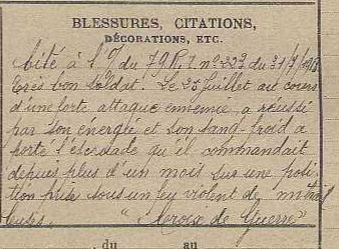 BLESSURES, CITATIONS,
DÉCORATIONS, ETC.
Cité à l'O du 79 R.I. n° 227 du 31/7/1918
Très bon soldat. Le 25 Juillet au cours
d'une forte attaque ennemie a réussi
par son énergie et son sang-froid a
porté l'escouade qu'il commandait
depuis plus d'un mois sur une posi-
tion prise sous un feu violent de mitrail
leuses. "Croix de Guerre"
du au